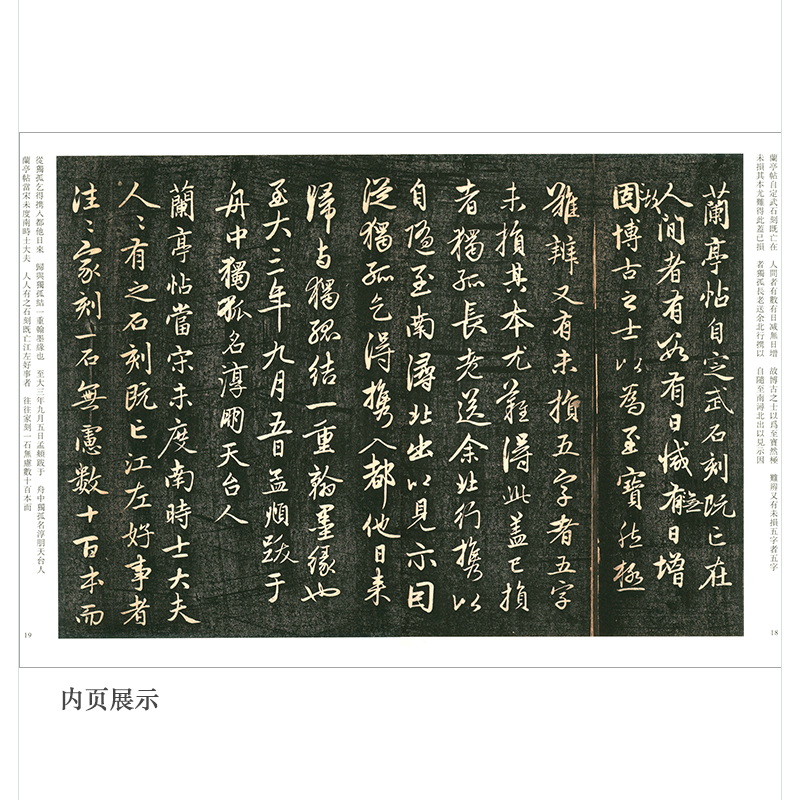 蘭亭帖自定武石刻既亡在 人間者有數有日減無日增 故博古之士以爲至寳然極 難辨又有未損五字者五字
未損其本尤難得此蓋已損 者獨孤長老送余北行携以 自隨至南潯北出以見示因
18
蘭亭帖自定武石刻既亡在
人間者有數有日減無日增
故
固博古之士以為至寶然極
難辨又有未損五字者五字
未損其本尤難得此蓋已損
者獨孤長老送余北行携以
自隨至南潯北出以見示因
從獨孤乞得携入都他日来
歸與獨孤結一重翰墨緣也
至大三年九月五日孟頫跋于
舟中獨孤名淳朋天台人
蘭亭帖當宋未度南時士大夫
人〻有之石刻既亡江左好事者
往〻家刻一石無慮數十百本而
從獨孤乞得携入都他日來 歸與獨孤結一重翰墨緣也 至大三年九月五日孟頫跋于 舟中獨孤名淳朋天台人
蘭亭帖當宋未度南時士大夫 人人有之石刻既亡江左好事者 往往家刻一石無慮數十百本而
19
内页展示